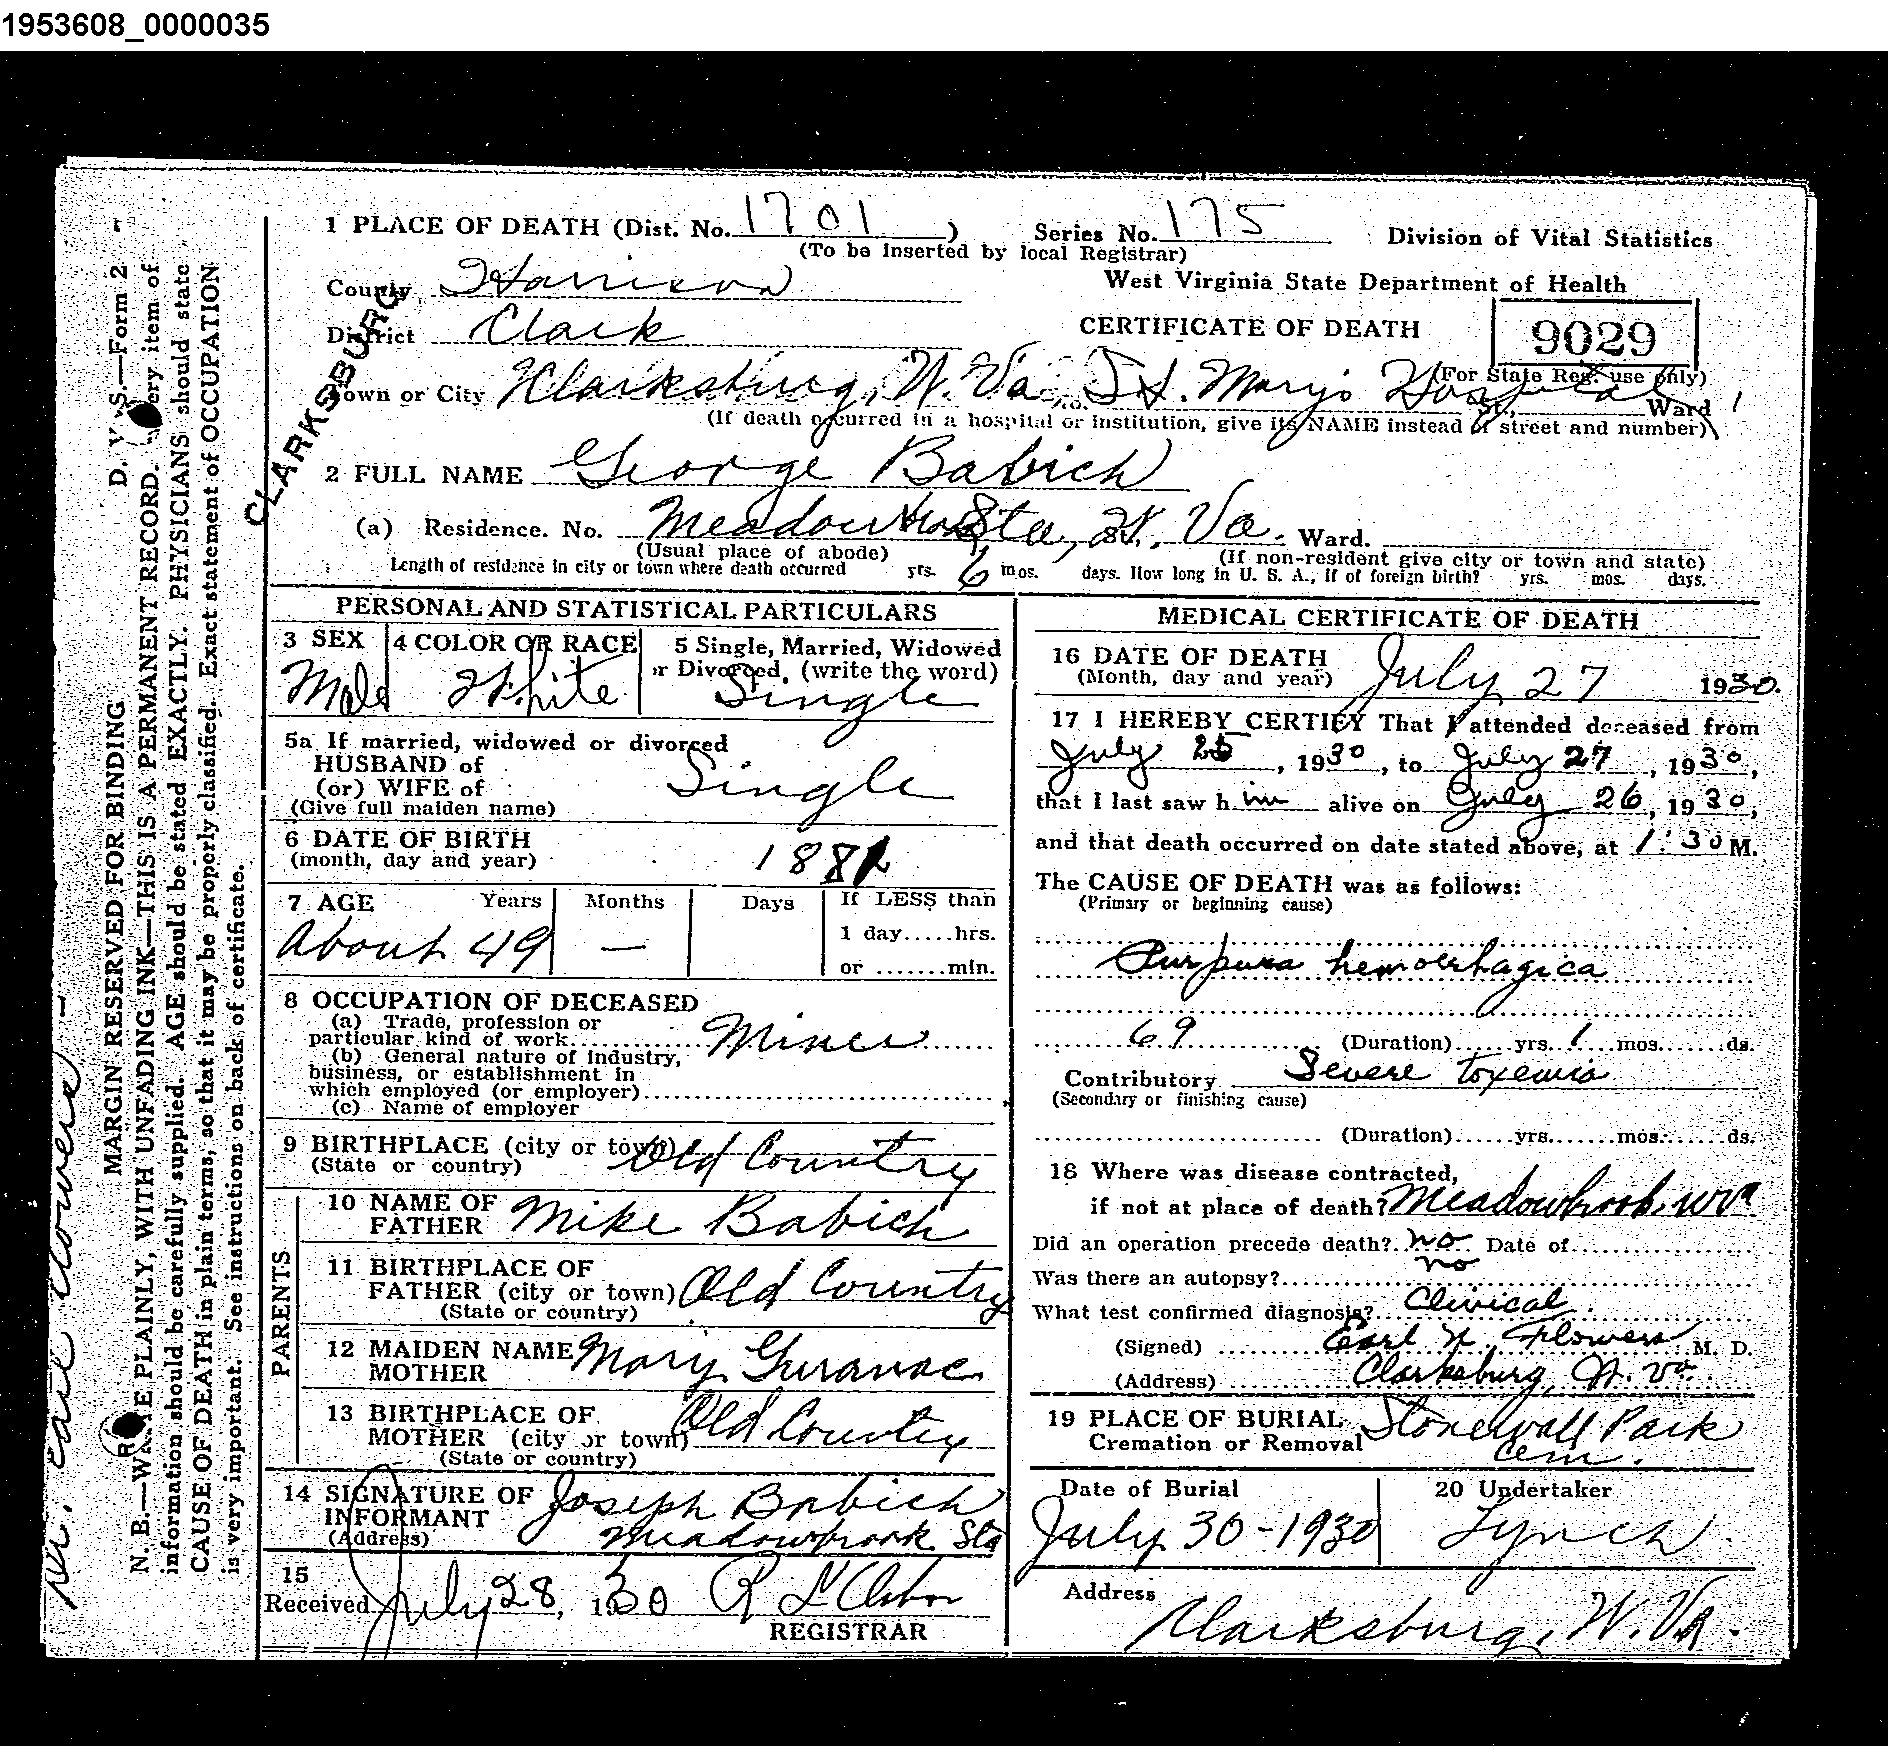 1953608_0000035
1 PLACE OF DEATH (Dist. No. 1701 ) Series No. 175 Division of Vital Statistics
(To be inserted by local Registrar)
County Harrison West Virginia State Department of Health
District Clark CERTIFICATE OF DEATH 9029
(For State Reg. use only)
Town or City Clarksburg, W. Va., No. St. Marys Hospital St., Ward
(If death occurred in a hospital or institution, give its NAME instead of street and number)
CLARKSBURG
2 FULL NAME George Babich
(a) Residence. No. Meadowbrook Sta, W. Va. Ward.
(Usual place of abode) (If non-resident give city or town and state)
Length of residence in city or town where death occurred yrs. 6 mos. days. How long in U. S. A., if of foreign birth? yrs. mos. days.
PERSONAL AND STATISTICAL PARTICULARS
3 SEX 4 COLOR OR RACE 5 Single, Married, Widowed
or Divorced. (write the word)
Male White Single
5a If married, widowed or divorced
HUSBAND of
(or) WIFE of Single
(Give full maiden name)
6 DATE OF BIRTH
(month, day and year) 1881
7 AGE Years Months Days If LESS than
About 49 — 1 day.....hrs.
or .......min.
8 OCCUPATION OF DECEASED
(a) Trade, profession or
particular kind of work Miner
(b) General nature of industry,
business, or establishment in
which employed (or employer)
(c) Name of employer
9 BIRTHPLACE (city or town) Old Country
(State or country)
PARENTS
10 NAME OF
FATHER Mike Babich
11 BIRTHPLACE OF
FATHER (city or town) Old Country
(State or country)
12 MAIDEN NAME
MOTHER Mary Guranac
13 BIRTHPLACE OF
MOTHER (city or town) Old Country
(State or country)
14 SIGNATURE OF
INFORMANT Joseph Babich
(Address) Meadowbrook Sta
15
Received July 28, 1930 R L Osborn
REGISTRAR
MEDICAL CERTIFICATE OF DEATH
16 DATE OF DEATH
(Month, day and year) July 27 1930.
17 I HEREBY CERTIFY That I attended deceased from
July 25, 1930, to July 27, 1930,
that I last saw him alive on July 26, 1930,
and that death occurred on date stated above, at 1:30 M.
The CAUSE OF DEATH was as follows:
(Primary or beginning cause)
Purpura hemorrhagica
69 (Duration)......yrs. 1 mos.......ds.
Contributory Severe Toxemia
(Secondary or finishing cause)
(Duration)......yrs.......mos.......ds.
18 Where was disease contracted,
if not at place of death? Meadowbrook, W Va
Did an operation precede death? no Date of
Was there an autopsy? no
What test confirmed diagnosis? Clinical
(Signed) Earl N Flowers M. D.
(Address) Clarksburg, W. Va.
19 PLACE OF BURIAL
Cremation or Removal Stonewall Park
Cem.
Date of Burial 20 Undertaker
July 30-1930 Lynch
Address
Clarksburg, W. Va.
D. V. S.—Form 2
MARGIN RESERVED FOR BINDING
N. B.—WRITE PLAINLY, WITH UNFADING INK—THIS IS A PERMANENT RECORD. Every item of
information should be carefully supplied. AGE should be stated EXACTLY. PHYSICIANS should state
CAUSE OF DEATH in plain terms, so that it may be properly classified. Exact statement of OCCUPATION
is very important. See instructions on back of certificate.